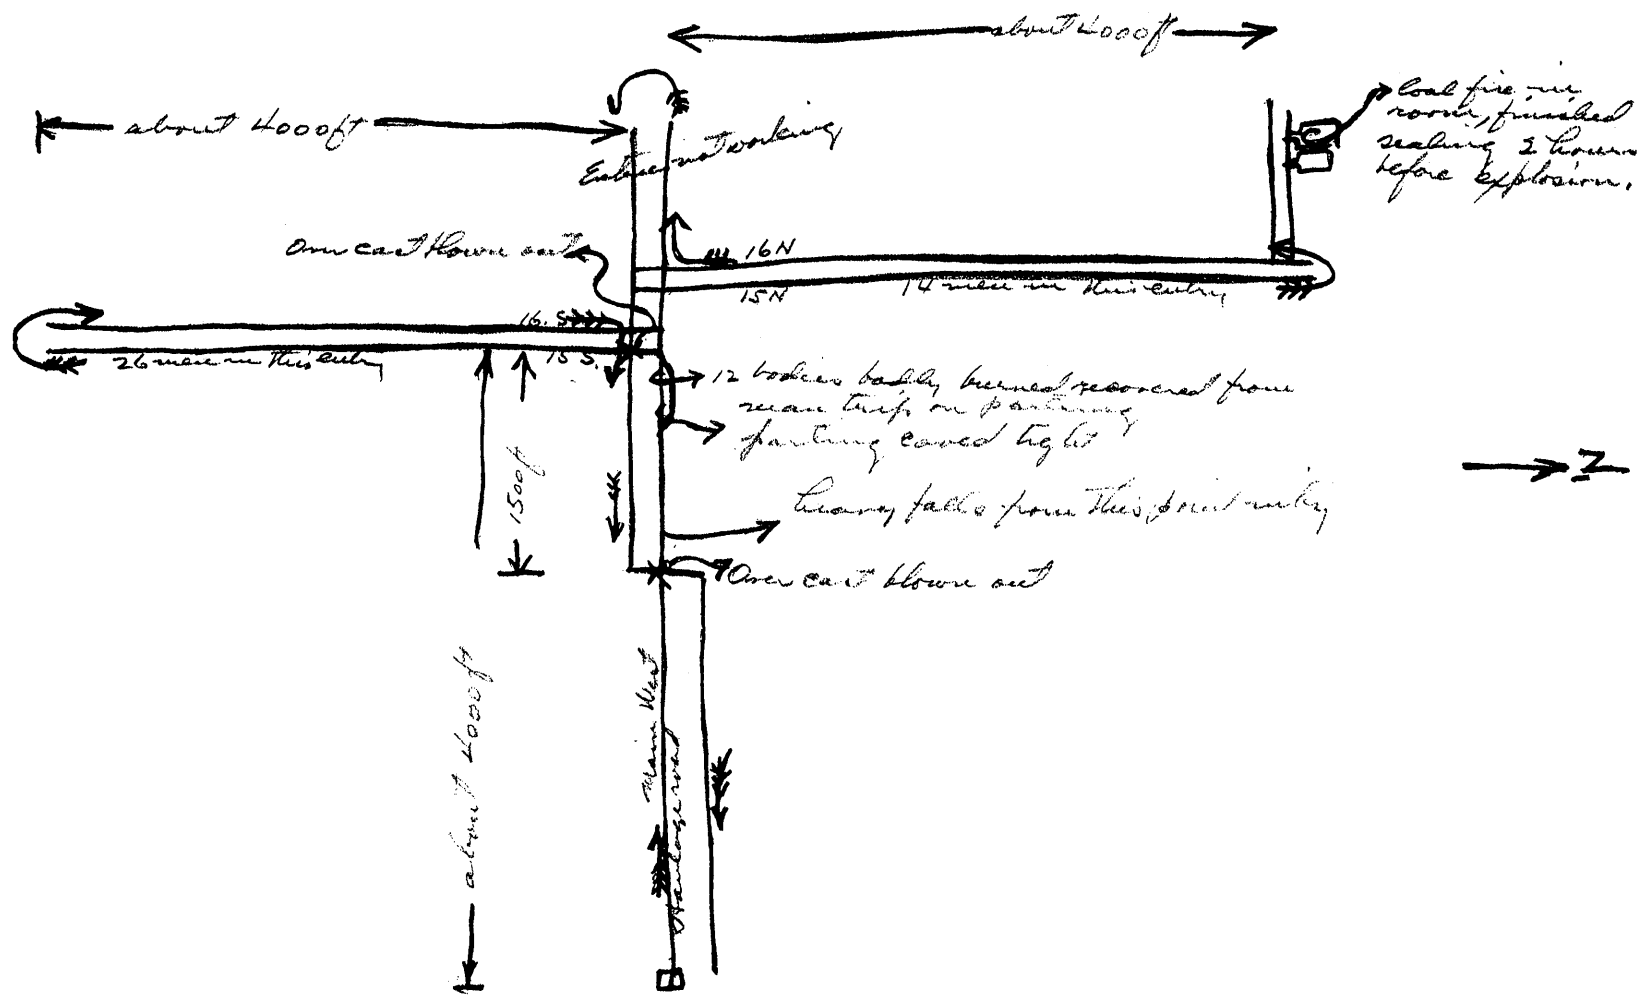 about 4000ft
about 4000ft
coal fire in
room, finished
sealing 2 hours
before explosion.
Entries not working
Over cast blown out
16 N
15 N
14 men in this entry
16. S
15 S.
26 men in this entry
12 bodies badly burned recovered from
man trip on parting
parting caved tight
1500ft
N
heavy falls from this point in by
Over cast blown out
about 4000ft
Main West
Haulage road